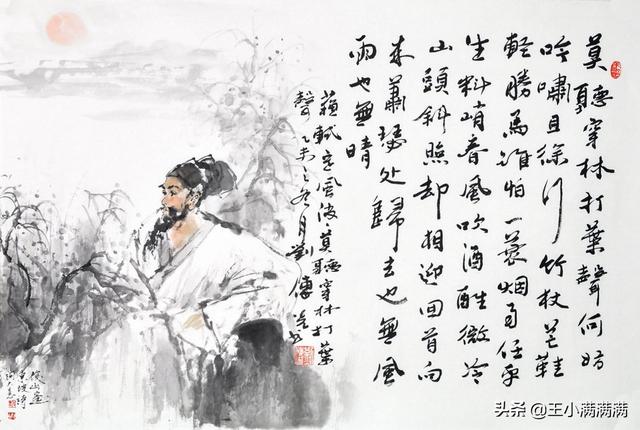 莫聽穿林打葉聲何妨
吟嘯且徐行竹杖芒鞋
輕勝馬誰怕一蓑烟雨任平
生料峭春風吹酒醒微冷
山頭斜照却相迎回首向
来蕭瑟处歸去也無風
雨也無晴
蘇軾定風波莫聽穿林打葉
聲乙未之冬月劉傳
头条 @王小满满满